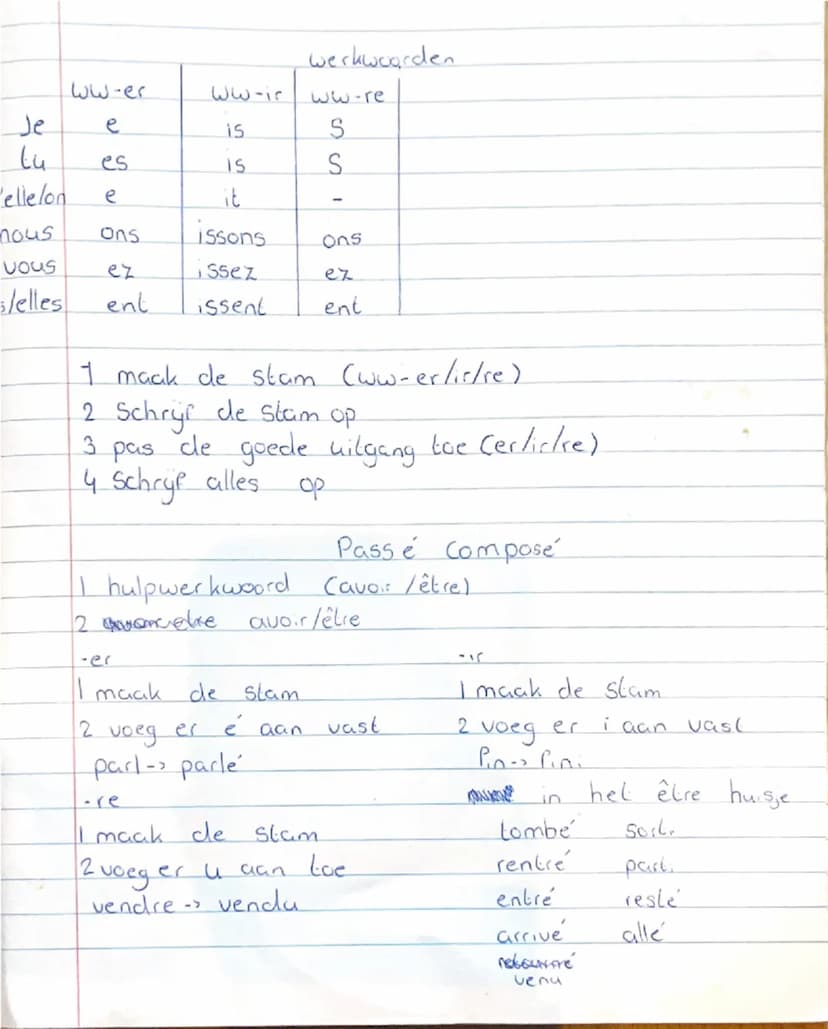 werkwoorden
ww-er ww-ir ww-re
Je e is s
tu es is s
elle/on e it -
nous ons issons ons
vous ez issez ez
s/elles ent issent ent
1 maak de stam (ww-er/ir/re)
2 Schrijf de stam op
3 pas de goede uitgang toe (er/ir/re)
4 Schrijf alles op
Passé composé
1 hulpwerkwoord (avoir/être)
2 avoir/être
-er -ir
1 maak de stam 1 maak de stam
2 voeg er é aan vast 2 voeg er i aan vast
parl -> parlé fin -> fini
-re in het être huisje
1 maak de stam tombé sorti
2 voeg er u aan toe rentré parti
vendre -> vendu entré resté
arrivé allé
venu